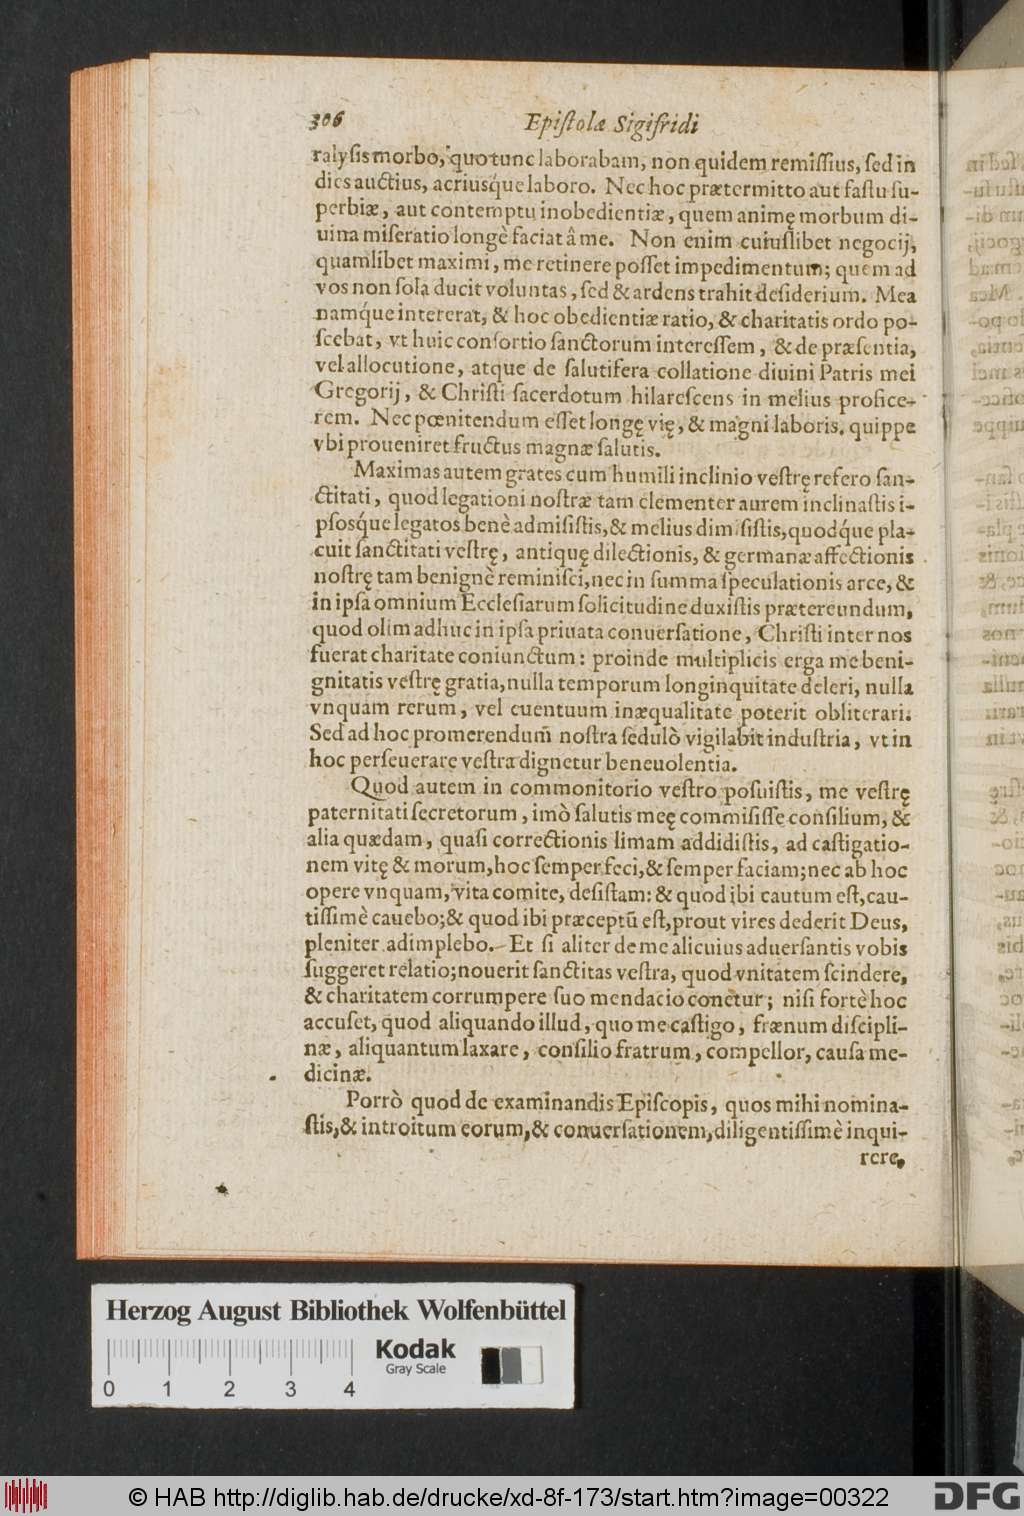 306 Epiſtolæ Sigifridi
ralyſis morbo, quo tunc laborabam, non quidem remiſſius, ſed in
dies auctius, acriusq́ue laboro. Nec hoc prætermitto aut faſtu ſu-
perbiæ, aut contemptu inobedientiæ, quem animę morbum di-
uina miſeratio longè faciat â me. Non enim cuiuſlibet negocij,
quamlibet maximi, me retinere poſſet impedimentum; quem ad
vos non ſola ducit voluntas, ſed & ardens trahit deſiderium. Mea
namq́ue intererat, & hoc obedientiæ ratio, & charitatis ordo po-
ſcebat, vt huic conſortio ſanctorum intereſſem, & de præſentia,
vel allocutione, atque de ſalutifera collatione diuini Patris mei
Gregorij, & Chriſti ſacerdotum hilareſcens in melius profice-
rem. Nec pœnitendum eſſet longę vię, & magni laboris, quippe
vbi proueniret fructus magnæ ſalutis.
Maximas autem grates cum humili inclinio veſtrę refero ſan-
ctitati, quod legationi noſtræ tam clementer aurem inclinaſtis i-
pſosq́ue legatos benè admiſiſtis, & melius dimiſiſtis, quodq́ue pla-
cuit ſanctitati veſtrę, antiquę dilectionis, & germanæ affectionis
noſtrę tam benignè reminiſci, nec in ſumma ſpeculationis arce, &
in ipſa omnium Eccleſiarum ſolicitudine duxiſtis prætereundum,
quod olim adhuc in ipſa priuata conuerſatione, Chriſti inter nos
fuerat charitate coniunctum: proinde multiplicis erga me beni-
gnitatis veſtrę gratia, nulla temporum longinquitate deleri, nulla
vnquam rerum, vel euentuum inæqualitate poterit obliterari.
Sed ad hoc promerendum̃ noſtra ſedulò vigilabit induſtria, vt in
hoc perſeuerare veſtra dignetur beneuolentia.
Quod autem in commonitorio veſtro poſuiſtis, me veſtrę
paternitati ſecretorum, imò ſalutis meę commiſiſſe conſilium, &
alia quædam, quaſi correctionis limam addidiſtis, ad caſtigatio-
nem vitę & morum, hoc ſemper feci, & ſemper faciam; nec ab hoc
opere vnquam, vita comite, deſiſtam: & quod ibi cautum eſt, cau-
tiſſimè cauebo; & quod ibi præceptū eſt, prout vires dederit Deus,
pleniter adimplebo. Et ſi aliter de me alicuius aduerſantis vobis
ſuggeret relatio; nouerit ſanctitas veſtra, quod vnitatem ſcindere,
& charitatem corrumpere ſuo mendacio conetur; niſi fortè hoc
accuſet, quod aliquando illud, quo me caſtigo, frænum diſcipli-
næ, aliquantum laxare, conſilio fratrum, compellor, cauſa me-
dicinæ.
Porrò quod de examinandis Epiſcopis, quos mihi nomina-
ſtis, & introitum eorum, & conuerſationem, diligentiſſimè inqui-
rere,
Herzog August Bibliothek Wolfenbüttel
Kodak
Gray Scale
0 1 2 3 4
© HAB http://diglib.hab.de/drucke/xd-8f-173/start.htm?image=00322
DFG